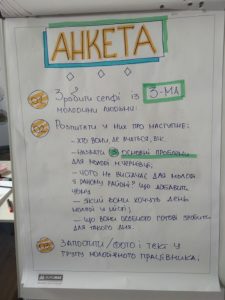 АНКЕТА
Зробити селфі із 3-МА
молодими людьми.
Розпитати у них про наступне:
- хто вони, де вчаться, вік.
- назвати 3 основні проблеми
для молоді м.Чернівці;
- чого не вистачає для молоді
у даному районі? що додавить
чому
- який вони хочуть день
молоді у місті;
- що вони особисто готові зробити
для такого дня.
Запостити /фото і текст у
групу молодіжного працівника;